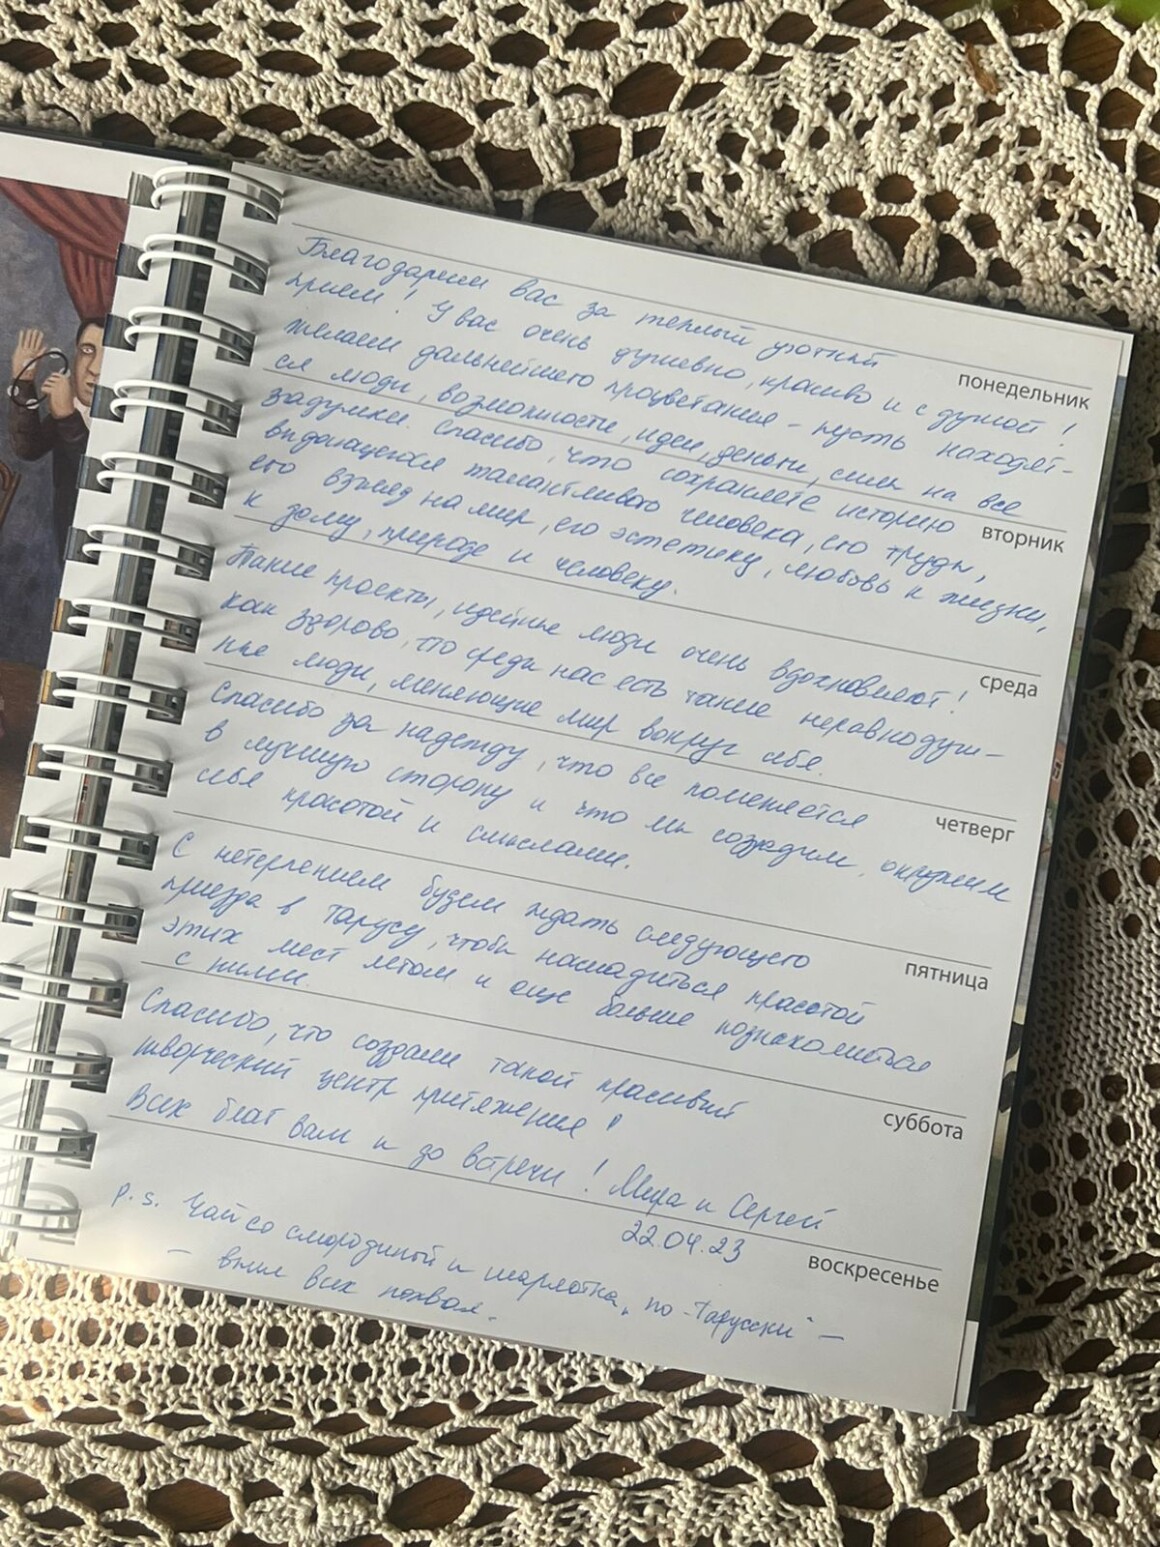 Благодарим вас за теплый уютный
прием! У вас очень душевно, красиво и с душой!
понедельник
Желаем дальнейшего процветания - пусть находят-
ся люди, возможности, идеи, деньги, силы на все
задумки. Спасибо, что сохраняете историю
вторник
выдающегося талантливого человека, его труды,
его взгляд на мир, его эстетику, любовь к жизни,
к дому, природе и человеку.
Такие проекты, идейные люди очень вдохновляют!
среда
Как здорово, что среди нас есть такие неравнодуш-
ные люди, меняющие мир вокруг себя.
Спасибо за надежду, что все поменяется
четверг
в лучшую сторону и что мы создадим, окружим
себя красотой и смыслами.
С нетерпением будем ждать следующего
пятница
приезда в Тарусу, чтобы насладиться красотой
этих мест летом и еще больше познакомиться
с ними.
Спасибо, что создали такой красивый
суббота
творческий центр притяжения!
Всех благ вам и до встречи! Мира и Сергей
22.04.23
воскресенье
P.S. Чай со смородиной и шарлотка „по-Тарусски" —
— выше всех похвал.